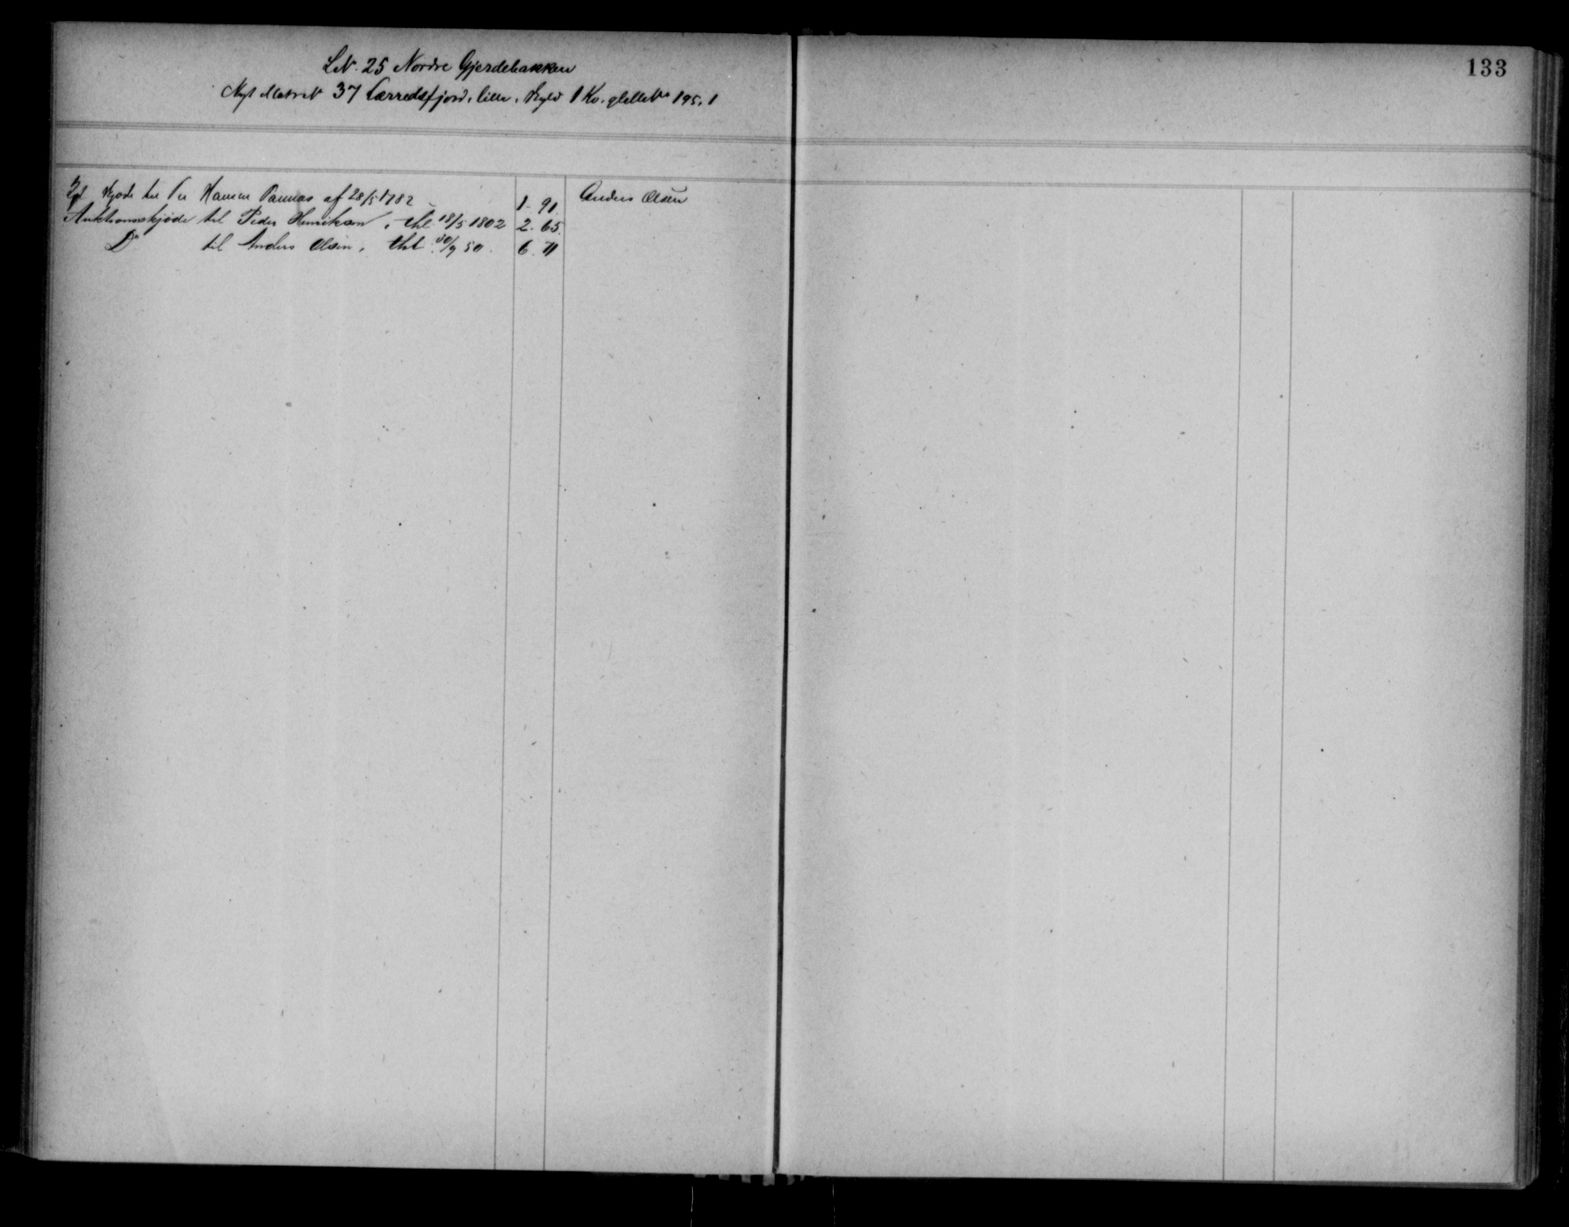 LN 25 Nordre Gjerdebakken
133
Nyt Matr N 37 Lerredsfjord, lille, Skyld 1 Kv. gl 195.1
Kgl. Skjøde til Hansen af 28/5 1782 1. 91 Anders Olsen
Auktionsskjøde til Peder Henriksen, thl 18/5 1802 2. 65
Do til Anders Olsen, thl 30/9 50. 6. 71